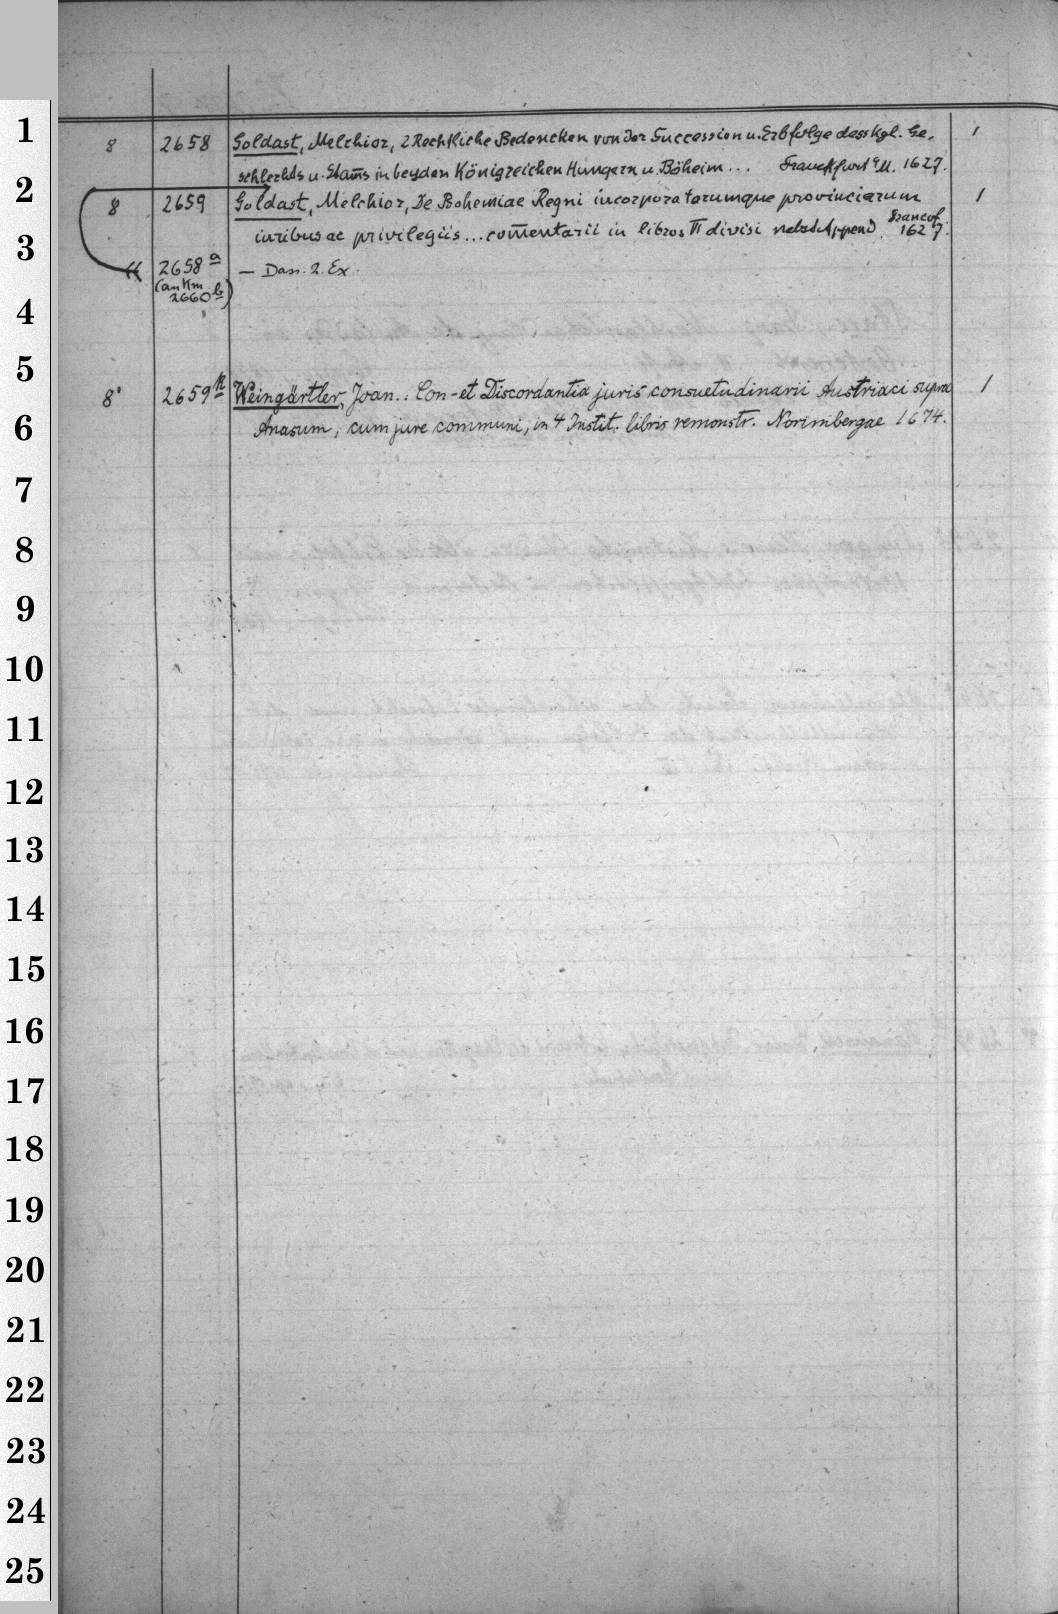 1
8 2658 Goldast, Melchior, 2 Rechtliche Bedencken von der Succession u. Erbfolge dess kgl. Ge- 1
schlechts u. Stam̄s in beyden Königreichen Hungern u. Böheim... Franckfurt a/M. 1627.
2
8 2659 Goldast, Melchior, De Bohemiae Regni incorporatarumque provinciarum 1
iuribus ac privilegiis... com̄entarii in libros VI divisi nebst Append. Francof. 1627.
3
2658a — Dass. 2. Ex.
(an Km
2660b)
4
5
8° 2659k Weingärtler, Joan.: Con- et Discordantia juris consuetudinarii Austriaci supra 1
6
Anasum, cum jure communi, in 4 Instit. libris remonstr. Norimbergae 1674.
7
8
9
10
11
12
13
14
15
16
17
18
19
20
21
22
23
24
25